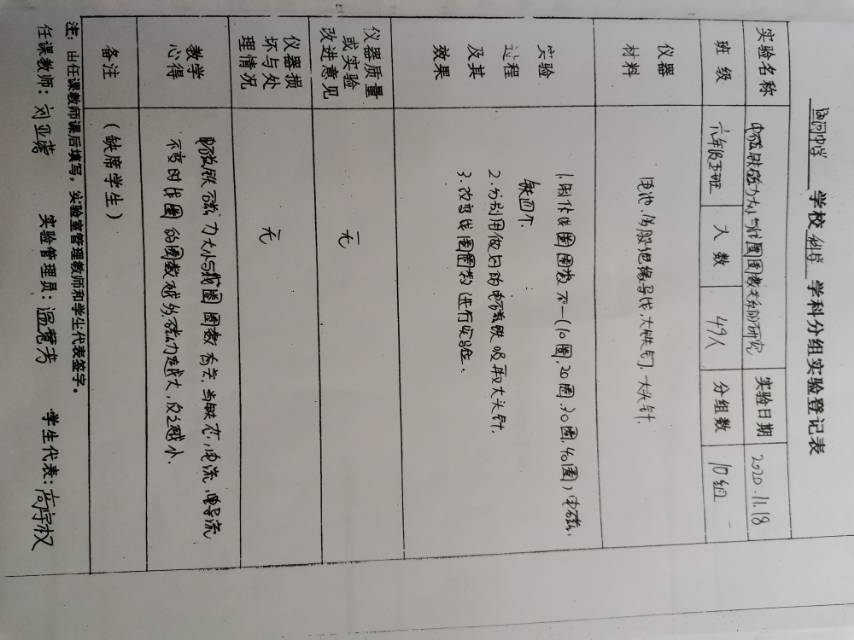 学校科学学科分组实验登记表
实验名称 电磁铁磁力大小与线圈圈数关系的研究 实验日期 2020.11.18
班级 六年级五班 人数 49人 分组数 10组
仪器材料 电池、绝缘导线、大铁钉、大头针.
实验过程及其效果
1.制作线圈圈数不一(10圈,20圈,30圈,40圈),电磁
铁四个.
2.分别用做好的电磁铁吸取大头针.
3.改变线圈圈数进行实验.
仪器质量或实验改进意见 无
仪器损坏与处理情况 无
教学心得
电磁铁磁力大小与线圈圈数有关.当铁芯,电流,
不变时线圈的圈数越多,磁力越大,反之越小.
备注 (缺席学生)
注:由任课教师课后填写,实验室管理教师和学生代表签字。
任课教师:刘亚 实验管理员:温 学生代表:高 权